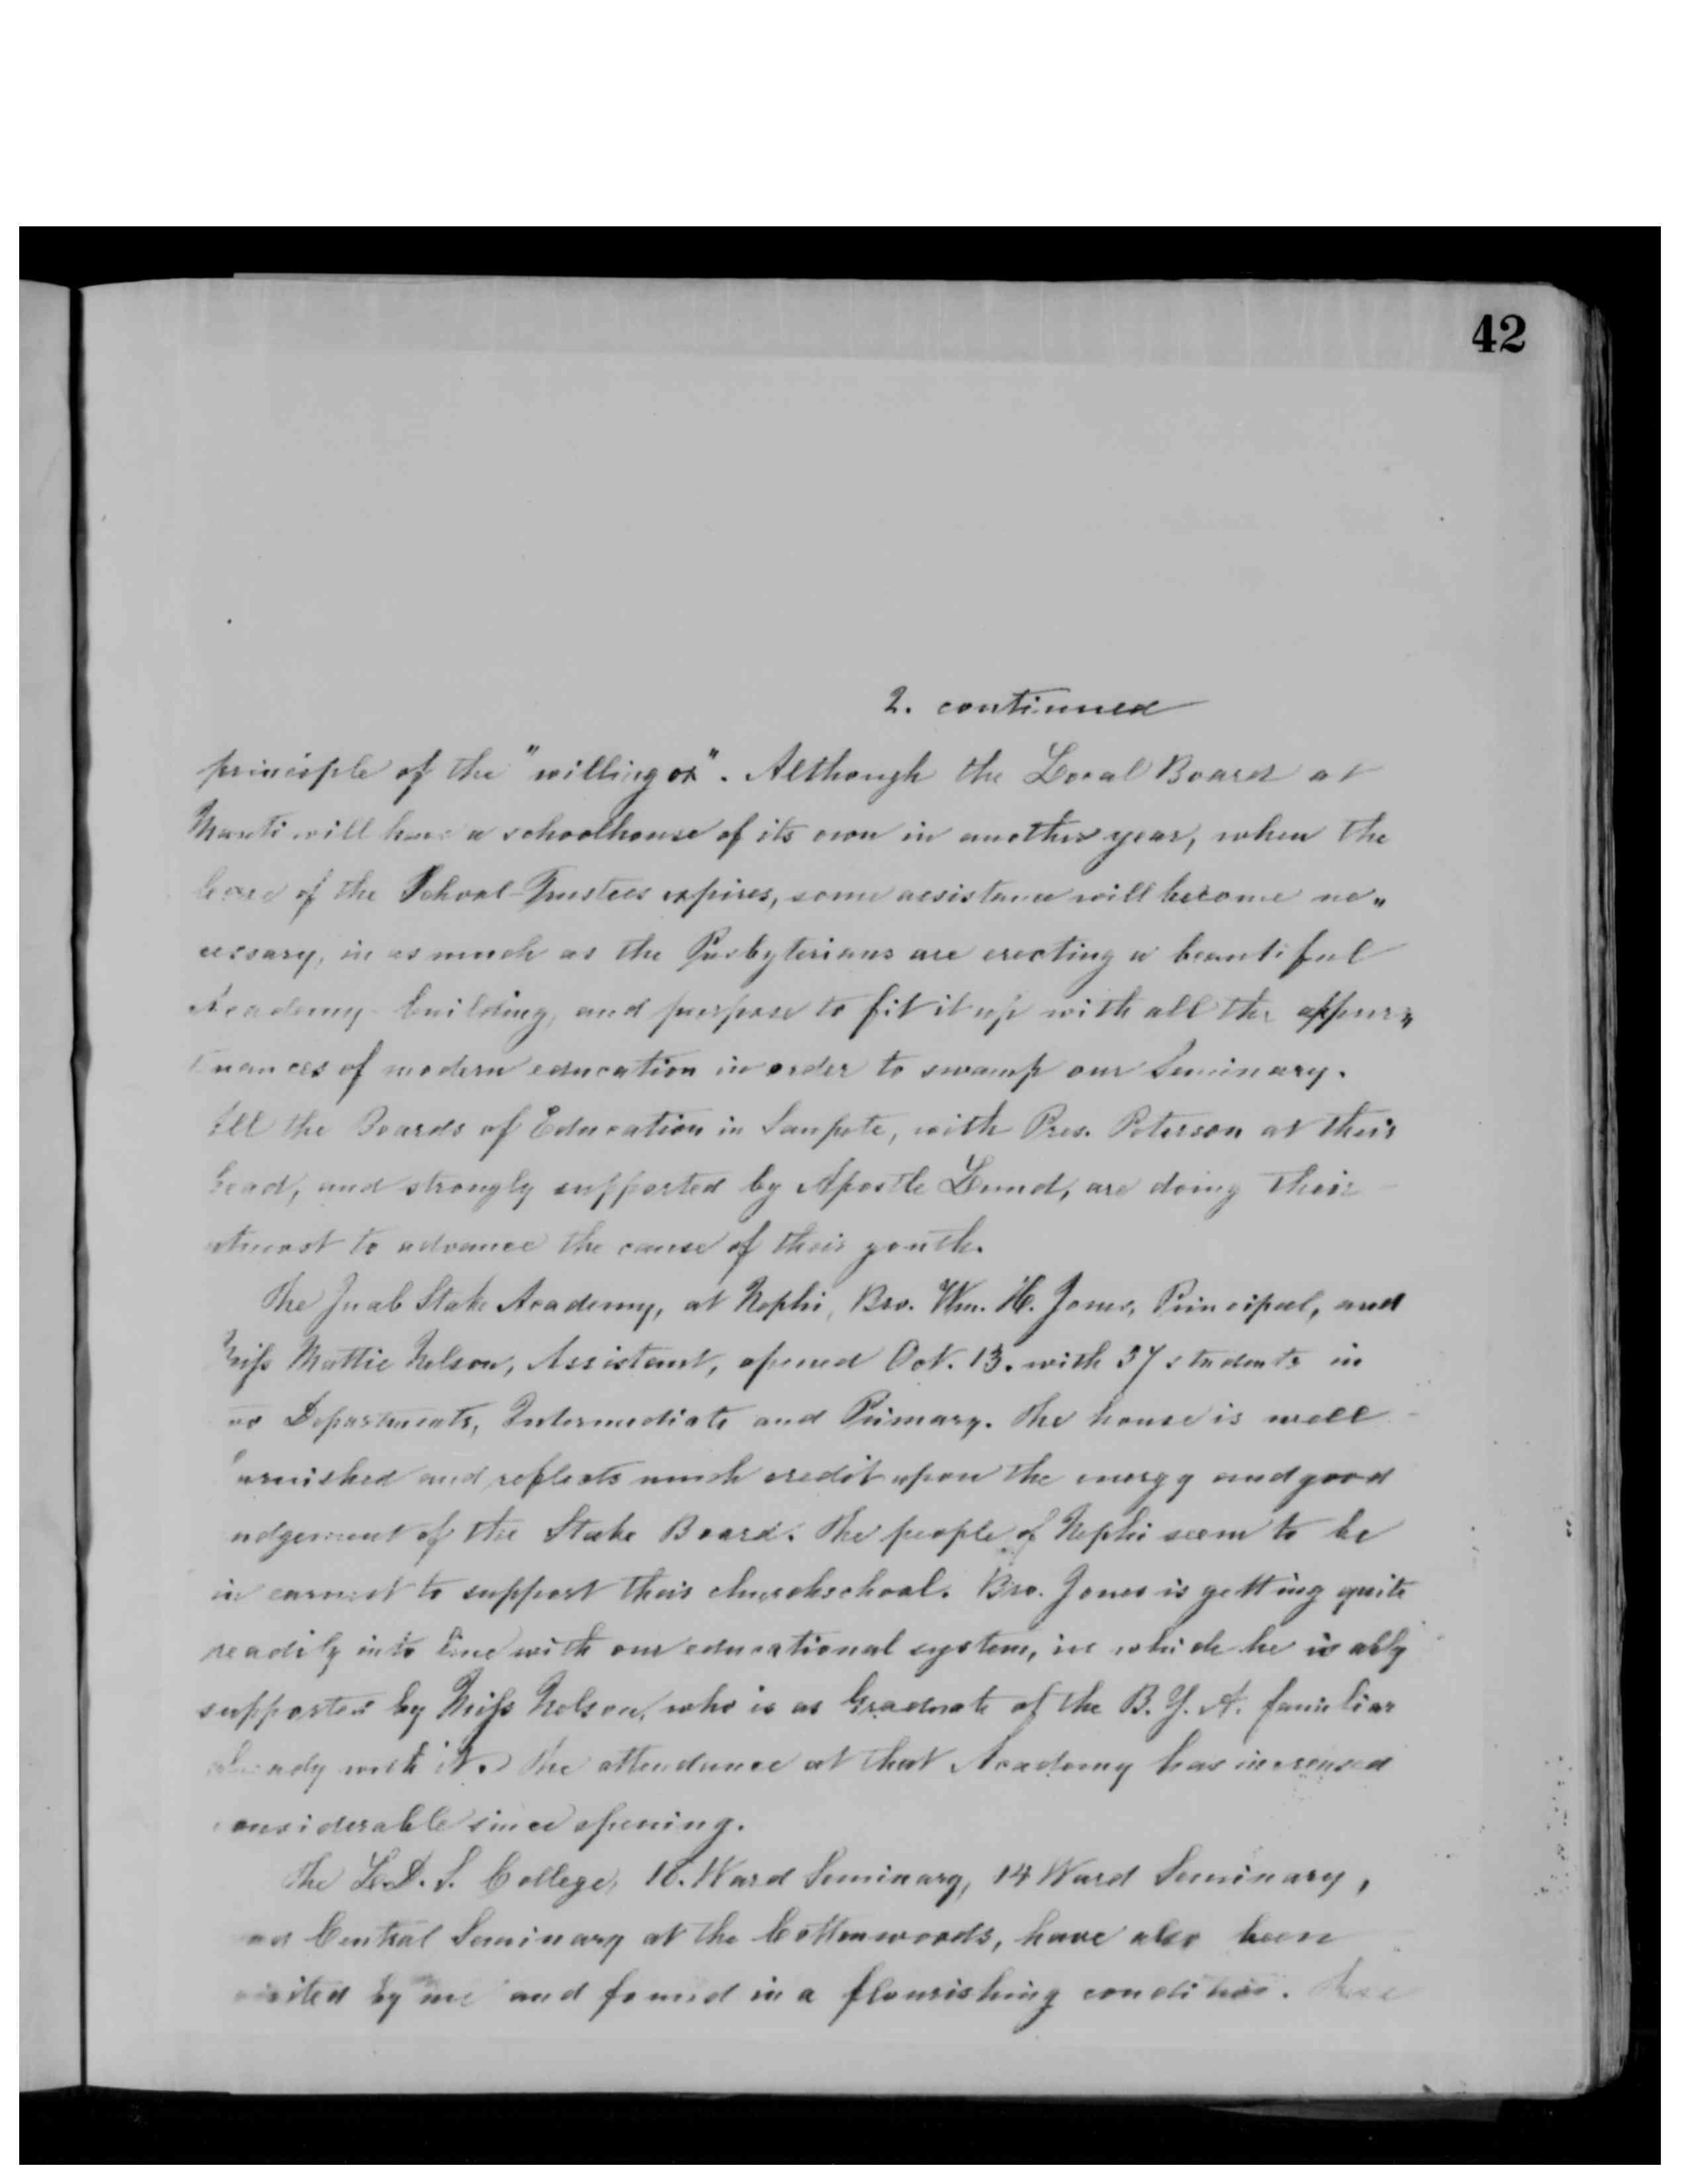 42
2. continued
principle of the "willing ox". Although the Local Board at
Manti will have a schoolhouse of its own in another year, when the
lease of the School-Trustees expires, some assistance will become ne„
cessary, in as much as the Presbyterians are erecting a beautiful
Academy-building, and purpose to fit it up with all the appur„
tnances of modern education in order to swamp our Seminary.
All the Boards of Education in Sanpete, with Pres. Peterson at their
head, and strongly supported by Apostle Lund, are doing their
utmost to advance the cause of their youth.
The Juab Stake Academy, at Nephi, Bro. Wm. H. Jones, Principal, and
Miss Mattie Nelson, Assistant, opened Oct. 13. with 37 students in
wo Departments, Intermediate and Primary. The house is well
furnished and reflects much credit upon the energy and good
udgement of the Stake Board. The people of Nephi seem to be
in earnest to support their churchschool. Bro. Jones is getting quite
readily into line with our educational system, in which he is ably
supported by Miss Nelson, who is as Graduate of the B. Y. A. familiar
already with it. The attendance at that Academy has increased
considerable since opening.
The L.D.S. College, 16. Ward Seminary, 14 Ward Seminary,
and Central Seminary at the Cottonwoods, have also been
visited by me and found in a flourishing condition. These